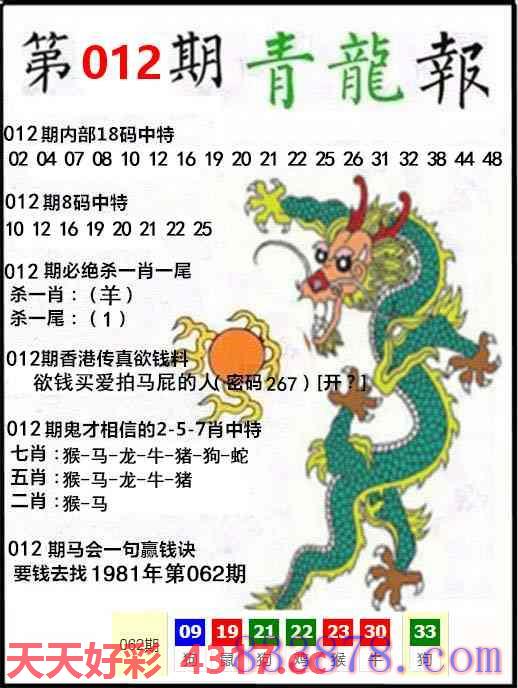 第012期青龍報
012期内部18码中特
02 04 07 08 10 12 16 19 20 21 22 25 26 31 32 38 44 48
012期8码中特
10 12 16 19 20 21 22 25
012期必绝杀一肖一尾
杀一肖：（羊）
杀一尾：（1）
012期香港传真欲钱料
欲钱买爱拍马屁的人(密码267）[开？]
012期鬼才相信的2-5-7肖中特
七肖：猴-马-龙-牛-猪-狗-蛇
五肖：猴-马-龙-牛-猪
二肖：猴-马
012期马会一句赢钱诀
要钱去找1981年第062期
062期 09 19 21 22 23 30 33
狗 鼠 狗 鸡 猴 牛 狗
天天好彩 4337.cc